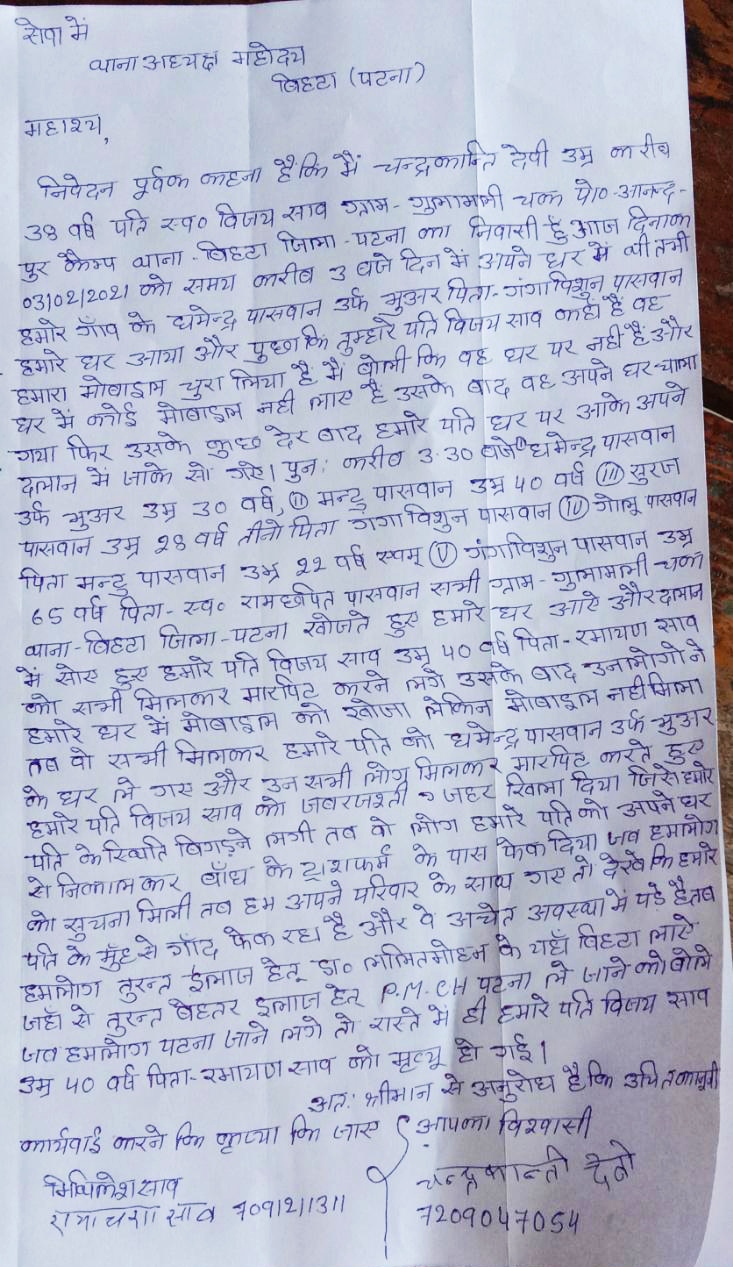 सेवा में
थाना अध्यक्ष महोदय
बिहटा (पटना)
महाशय,
निवेदन पूर्वक कहना है कि मैं चन्द्रकान्ति देवी उम्र करीब
38 वर्ष पति स्व० विजय साव ग्राम - गुलामाली चक पो० आनन्द-
पुर कैम्प थाना - बिहटा जिला - पटना का निवासी हूँ आज दिनांक
03/02/2021 को समय करीब 3 बजे दिन में अपने घर में थी तभी
हमारे गाँव के धमेन्द्र पासवान उर्फ भुअर पिता - गंगाविशुन पासवान
हमारे घर आया और पुछा कि तुम्हारे पति विजय साव कहाँ है वह
हमारा मोबाइल चुरा लिया है मैं बोली कि वह घर पर नही है और
घर में कोई मोबाइल नही लाए है उसके बाद वह अपने घर चला
गया फिर उसके कुछ देर बाद हमारे पति घर पर आके अपने
दलान में जाके सो गए। पुनः करीब 3:30 बजे धमेन्द्र पासवान
उर्फ भुअर उम्र 30 वर्ष, (II) मन्टु पासवान उम्र 40 वर्ष (III) सुरज
पासवान उम्र 28 वर्ष तीनो पिता गंगा विशुन पासवान (IV) गोलू पासवान
पिता मन्टु पासवान उम्र 22 वर्ष स्वम् (V) गंगाविशुन पासवान उम्र
65 वर्ष पिता - स्व० रामछपित पासवान सभी ग्राम - गुलामाली चक
थाना - बिहटा जिला - पटना खोजते हुए हमारे घर आऐ और दालान
में सोए हुए हमारे पति विजय साव उम्र 40 वर्ष पिता - रमायण साव
को सभी मिलकर मारपिट करने लगे उसके बाद उनलोगो ने
हमारे घर में मोबाइल को खोजा लेकिन मोबाइल नही मिला
तब वो सभी मिलकर हमारे पति को धमेन्द्र पासवान उर्फ भुअर
के घर ले गए और उन सभी लोग मिलकर मारपिट करते हुए
हमारे पति विजय साव को जबरजश्ती जहर खिला दिया जिसे हमारे
पति के स्थिति बिगड़ने लगी तब वो लोग हमारे पति को अपने घर
से निकाल कर बाँध के ट्राशफर्म के पास फेक दिया जब हमलोग
को सुचना मिली तब हम अपने परिवार के साथ गए तो देखे कि हमारे
पति के मुँह से गाँद फेक रहा है और वे अचेत अवस्था में पड़े है तब
हमलोग तुरन्त ईलाज हेतू डा० ललितमोहन के यहाँ बिहटा लाऐ
जहाँ से तुरन्त बेहतर इलाज हेतू P.M.CH पटना ले जाने को बोले
जब हमलोग पटना जाने लगे तो रास्ते में ही हमारे पति विजय साव
उम्र 40 वर्ष पिता - रमायण साव को मृत्यू हो गई।
अतः श्रीमान से अनुरोध है कि उचित कानूनी
कार्यवाई करने कि कृप्या कि जाए
आपका विश्वासी
मिथिलेश साव
चन्द्रकान्ती देवी
साव 7091211311
7209047054